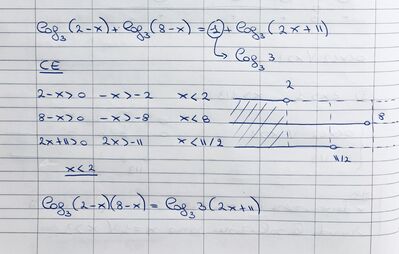 log₃(2-x)+log₃(8-x) = 1+log₃(2x+11)
log₃3
CE
2-x>0 -x>-2 x<2
8-x>0 -x>-8 x<8
2x+11>0 2x>-11 x<11/2
2
8
11/2
x<2
log₃(2-x)(8-x) = log₃3(2x+11)